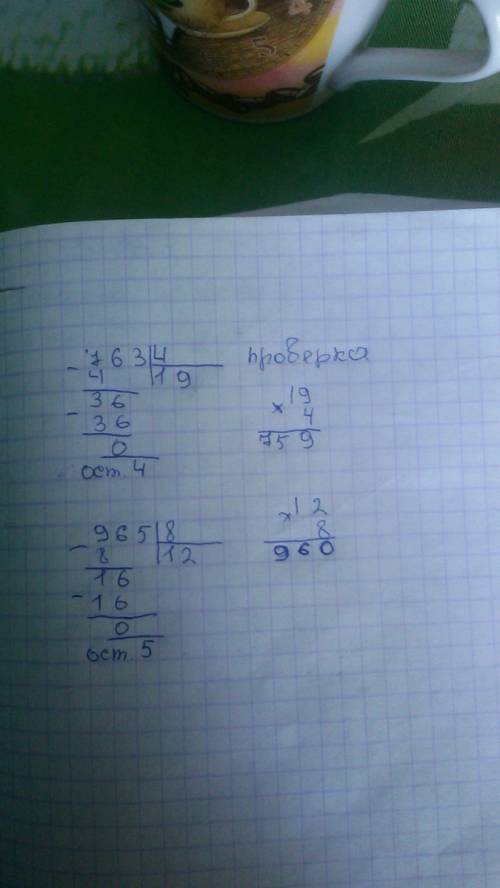 - 763|4 проверка
4 19
36 × 19
- 36 4
0 759
ост. 4
- 965|8 × 12
8 12 8
16 960
- 16
0
ост. 5
5 4